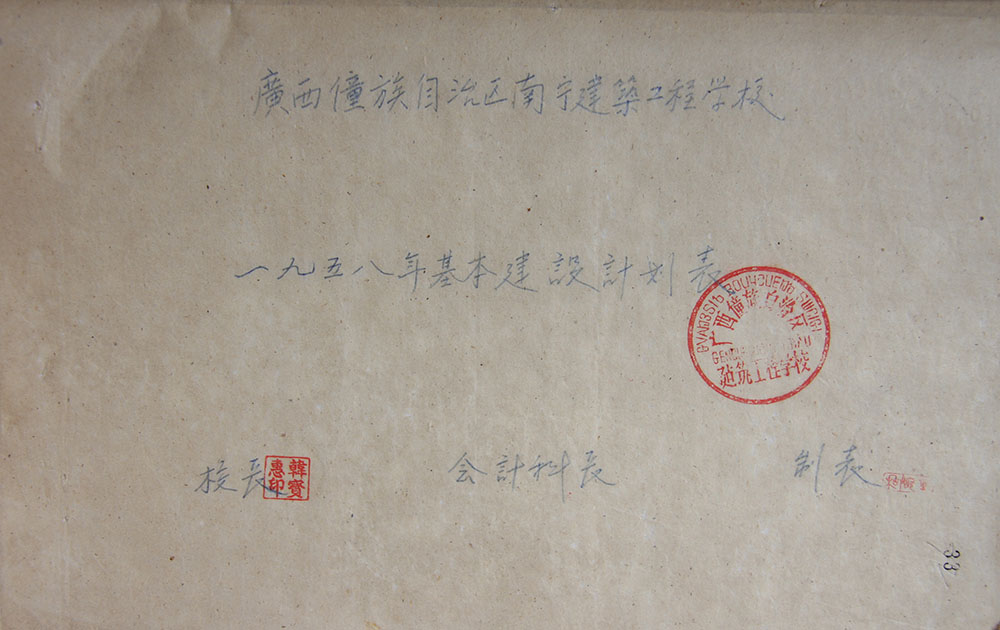 廣西僮族自治区南宁建築工程学校
一九五八年基本建設計划表
GVANGBSIH BOUҶCUEŊƄ SƜCIGI
广西僮族自治区
建筑工程学校
校長 韓寶惠印 会計科長 制表
33